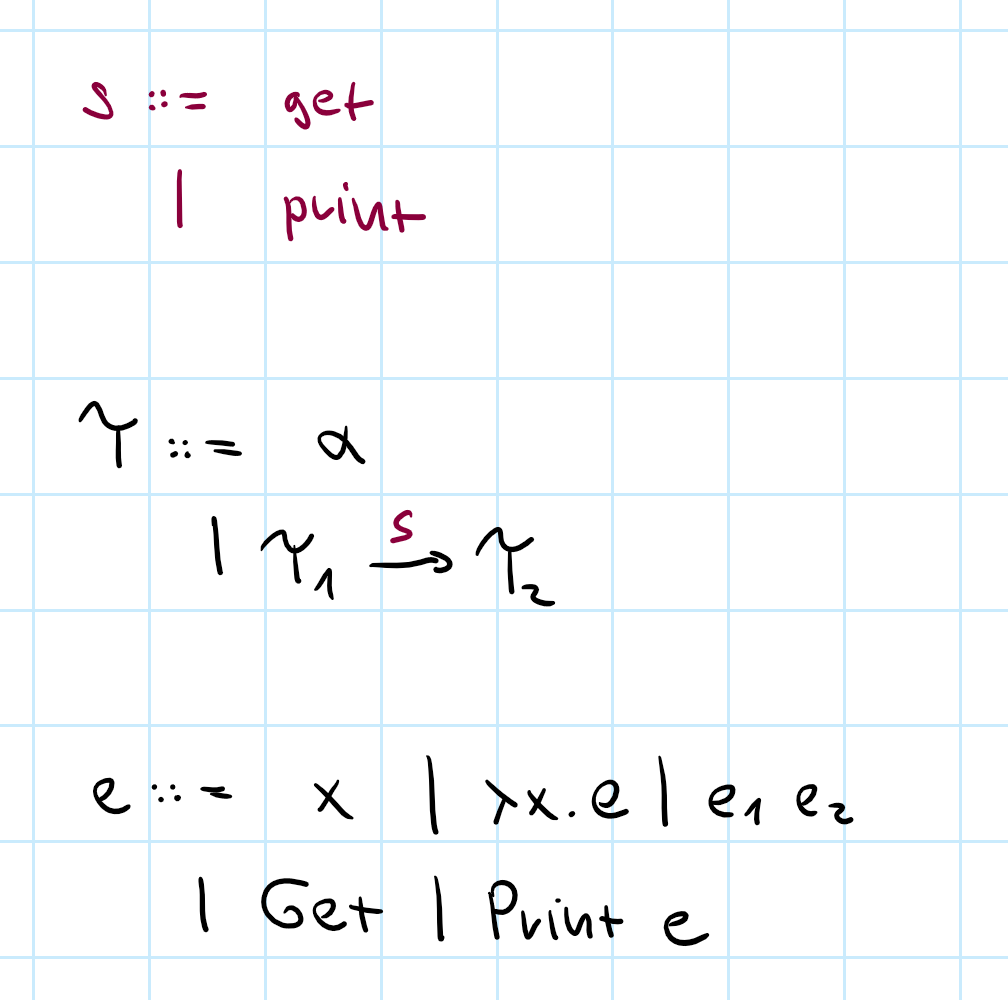 s ::= get
| print
τ ::= α
| τ₁ →ˢ τ₂
e ::= x | λx.e | e₁ e₂
| Get | Print e